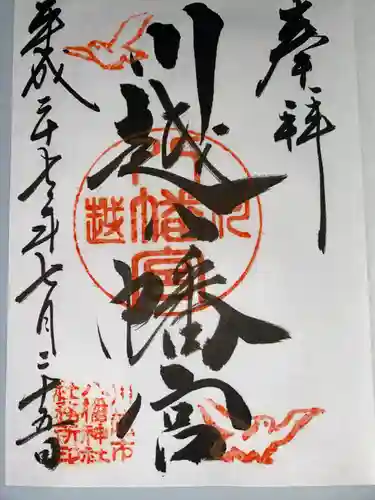 奉拝
川越八幡宮
平成二十七年七月二十五日
川越
八幡宮
川越市
八幡神社
社務所印